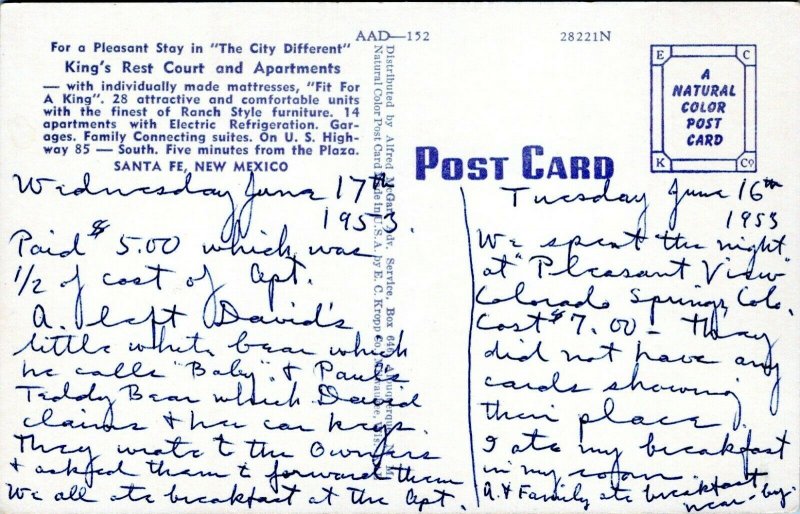 AAD—152
28221N
For a Pleasant Stay in "The City Different"
King's Rest Court and Apartments
— with individually made mattresses, "Fit For
A King". 28 attractive and comfortable units
with the finest of Ranch Style furniture. 14
apartments with Electric Refrigeration. Gar-
ages. Family Connecting suites. On U. S. High-
way 85 — South. Five minutes from the Plaza.
SANTA FE, NEW MEXICO
Distributed by Alfred McGarr Adv. Service, Box 64
Natural Color Post Card Made in U.S.A. by E. C. Kropp Co.
E C
K Co
A
NATURAL
COLOR
POST
CARD
POST CARD
Wednesday June 17th
1953.
Paid $5.00 which was
1/2 of cost of Apt.
A. left David's
little white bear which
he calls "Baby" & Paul's
Teddy Bear which David
claims & her car keys.
They wrote to the Owners
& asked them to forward them
We all ate breakfast at the Apt.
Tuesday June 16th
1953
We spent the night
at "Pleasant View"
Colorado Springs, Colo.
Cost $7.00 - They
did not have any
cards showing
their place.
I ate my breakfast
in my room.
A. & Family ate breakfast
near-by-